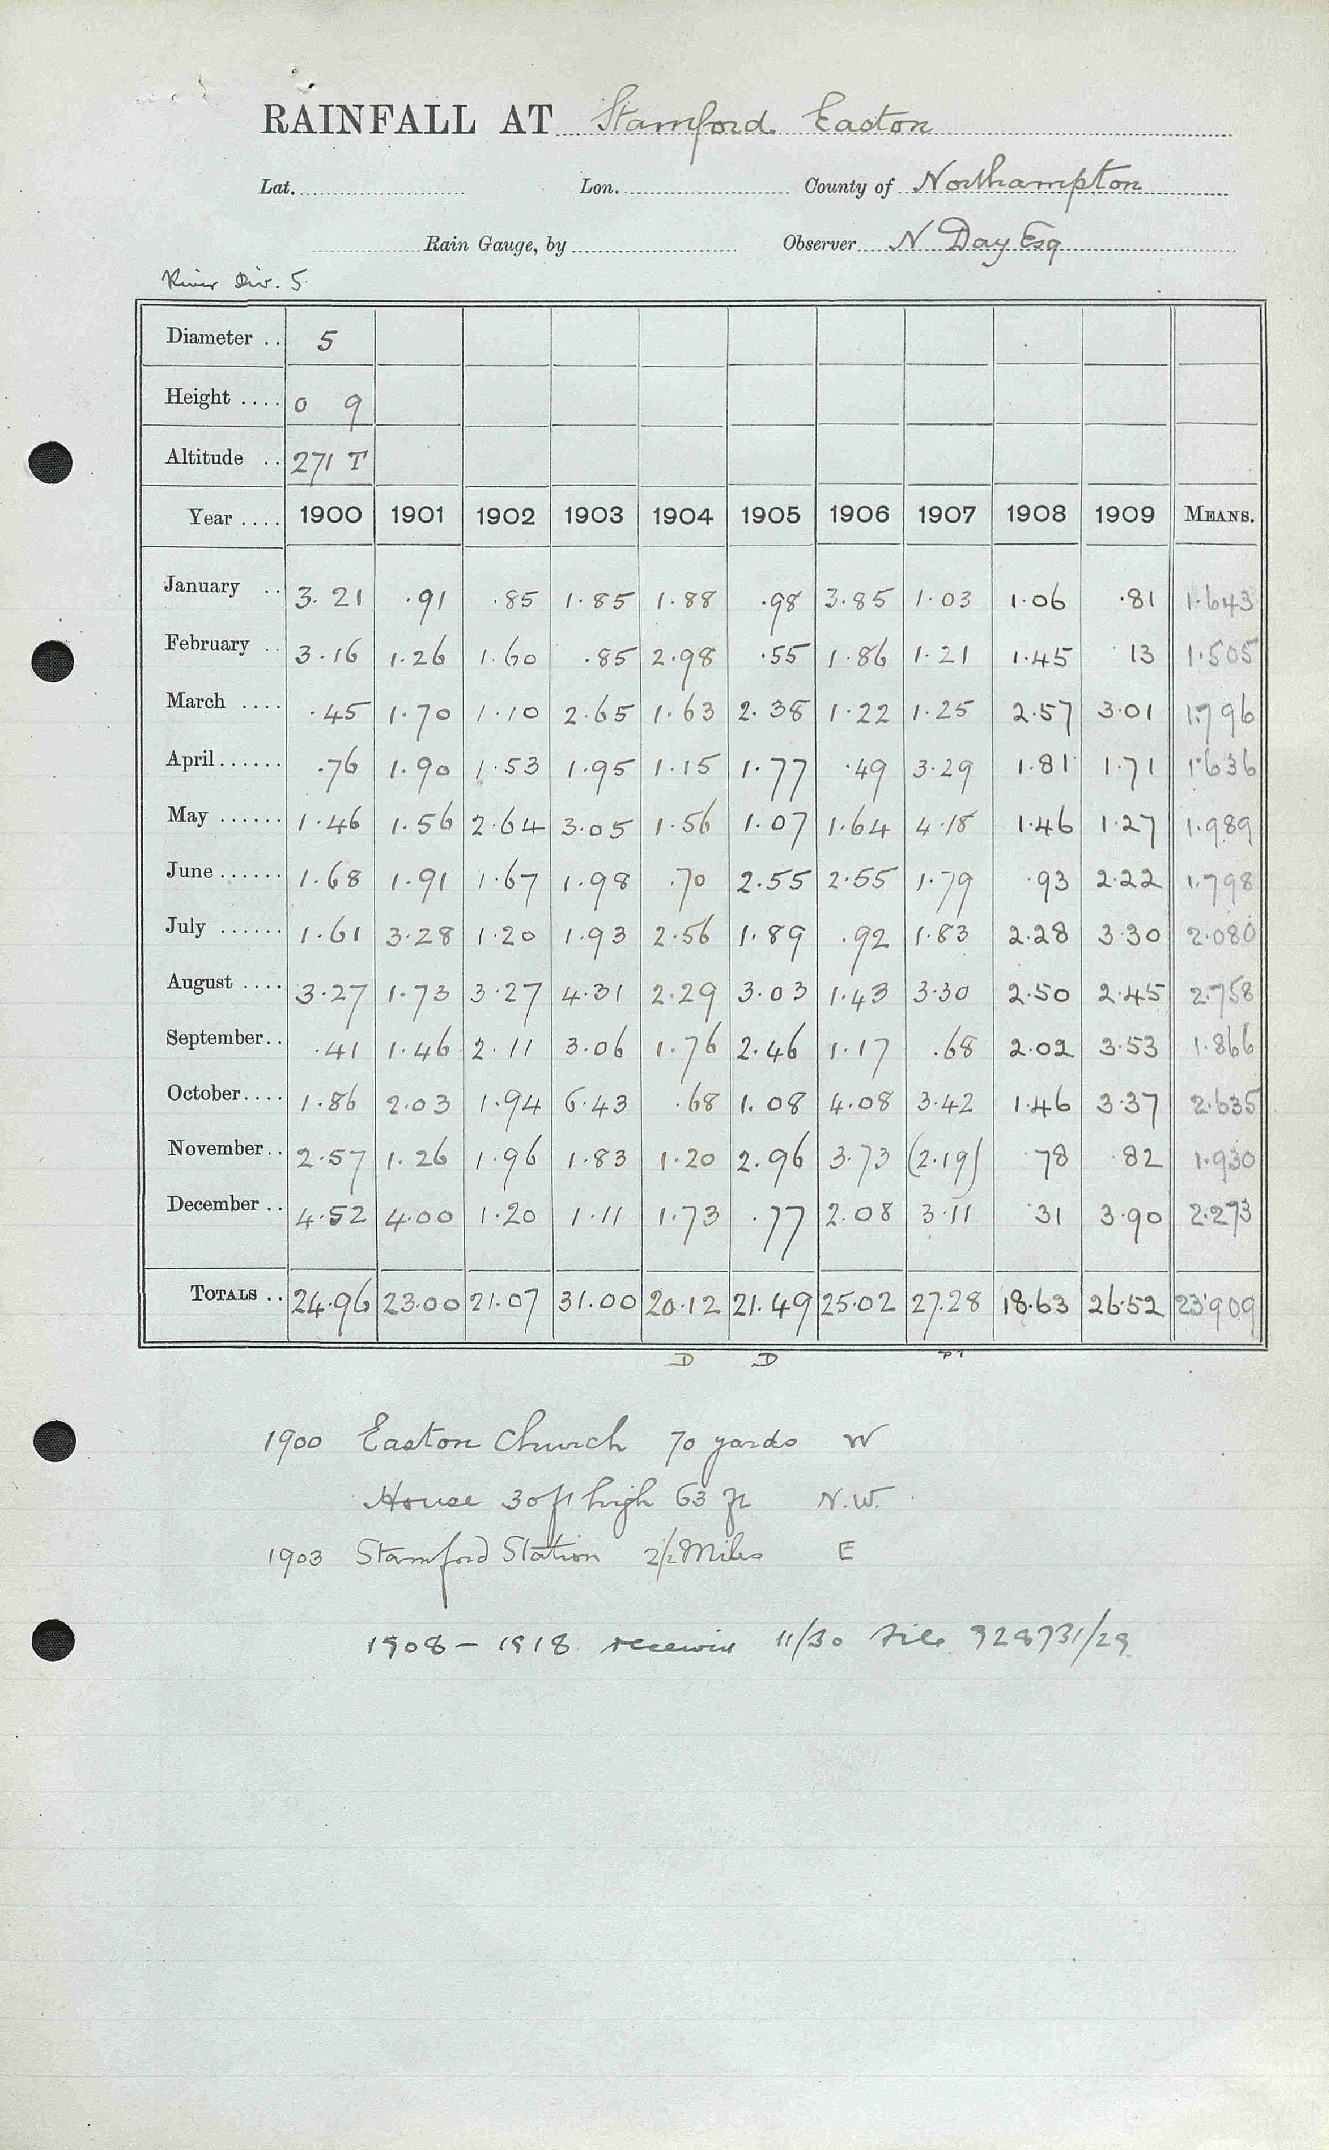 RAINFALL AT Stamford Easton
Lat. Lon. County of Northampton
Rain Gauge, by Observer N Day Esq
River Div. 5.
Diameter .. 5
Height .... 0 9
Altitude .. 271 T
Year .... 1900 1901 1902 1903 1904 1905 1906 1907 1908 1909 MEANS.
January .. 3.21 .91 .85 1.85 1.88 .98 3.85 1.03 1.06 .81 1.643
February .. 3.16 1.26 1.60 .85 2.98 .55 1.86 1.21 1.45 13 1.505
March .... .45 1.70 1.10 2.65 1.63 2.38 1.22 1.25 2.57 3.01 1.796
April ...... .76 1.90 1.53 1.95 1.15 1.77 .49 3.29 1.81 1.71 1.636
May ...... 1.46 1.56 2.64 3.05 1.56 1.07 1.64 4.18 1.46 1.27 1.989
June ...... 1.68 1.91 1.67 1.98 .70 2.55 2.55 1.79 .93 2.22 1.798
July ...... 1.61 3.28 1.20 1.93 2.56 1.89 .92 1.83 2.28 3.30 2.080
August .... 3.27 1.73 3.27 4.31 2.29 3.03 1.43 3.30 2.50 2.45 2.758
September .. .41 1.46 2.11 3.06 1.76 2.46 1.17 .68 2.02 3.53 1.866
October .... 1.86 2.03 1.94 6.43 .68 1.08 4.08 3.42 1.46 3.37 2.635
November .. 2.57 1.26 1.96 1.83 1.20 2.96 3.73 (2.19) 78 .82 1.930
December .. 4.52 4.00 1.20 1.11 1.73 .77 2.08 3.11 31 3.90 2.273
TOTALS .. 24.96 23.00 21.07 31.00 20.12 21.49 25.02 27.28 18.63 26.52 23.909
D D
1900 Easton Church 70 yards W
House 30ft high 63 ft N.W.
1903 Stamford Station 2½ Miles E
1908 – 1918 11/30 File 928731/29